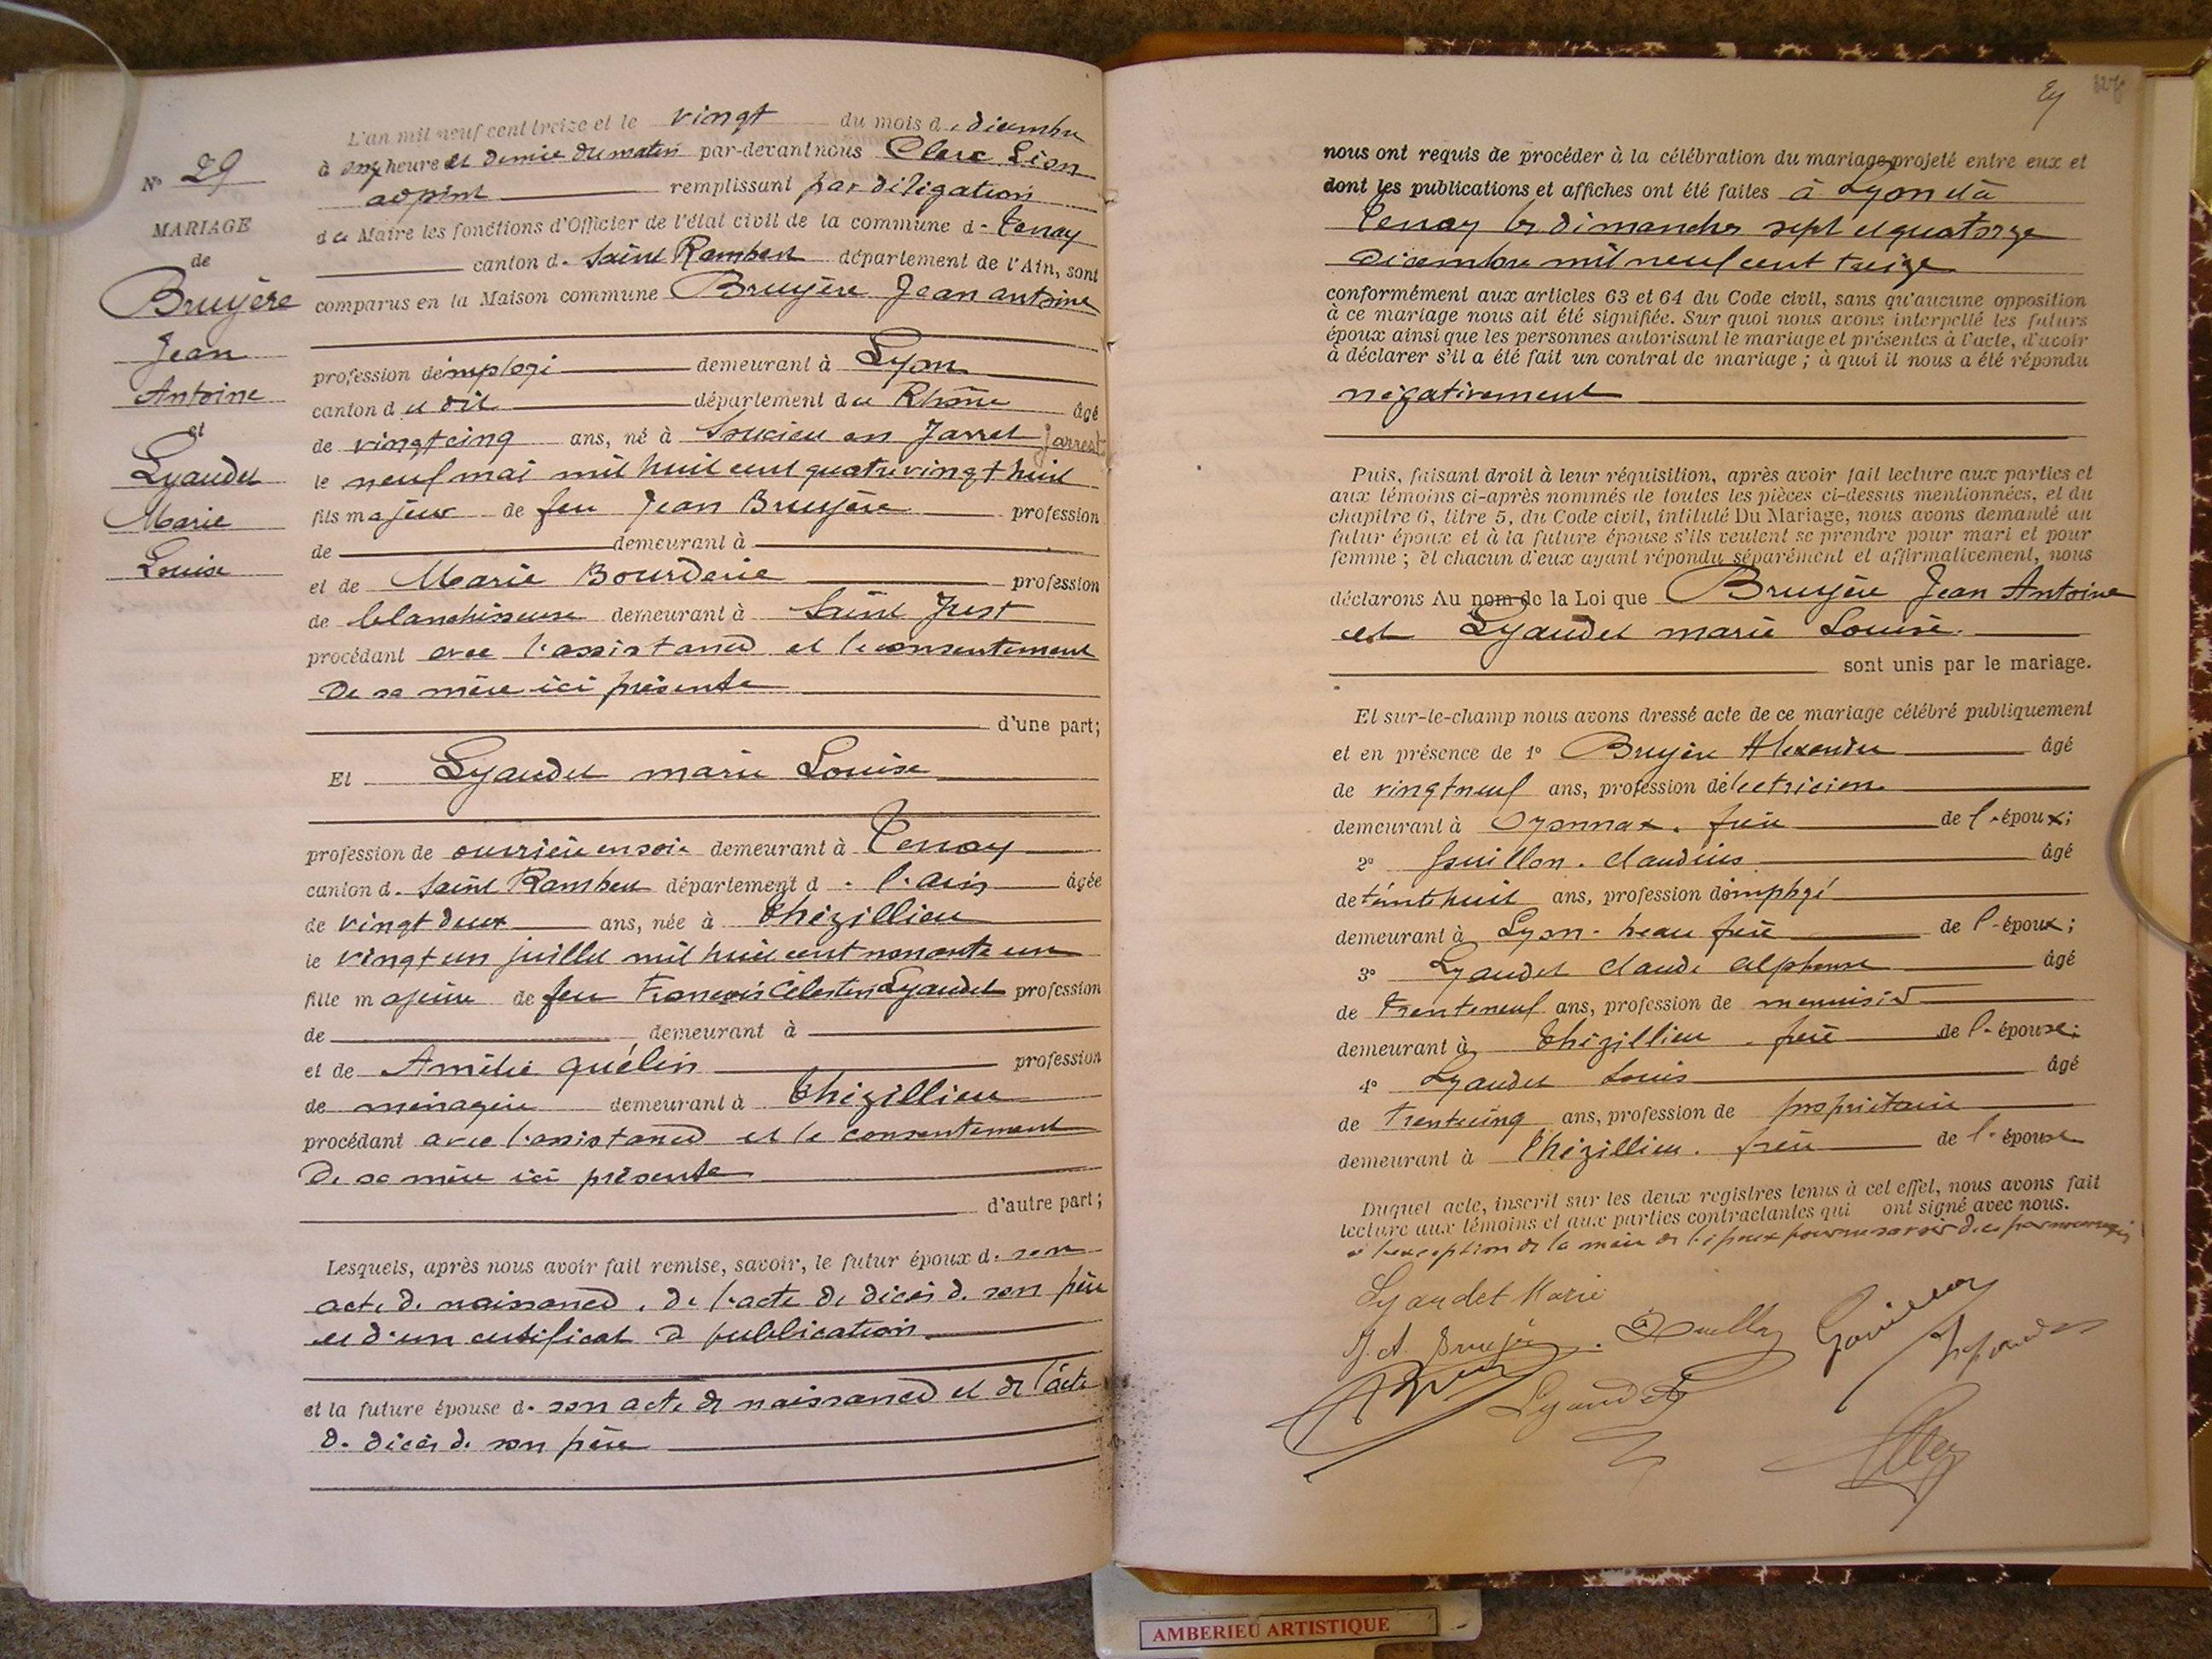 N° 29
MARIAGE
de
Bruyère
Jean
Antoine
et
Lyaudet
Marie
Louise
L'an mil neuf cent treize et le vingt du mois de décembre
à onze heure et demie du matin par-devant nous Clerc Léon
adjoint remplissant par délégation
du Maire les fonctions d'Officier de l'état civil de la commune de Tenay
canton de Saint Rambert département de l'Ain, sont
comparus en la Maison commune Bruyère Jean antoine
profession d'employé demeurant à Lyon
canton du dit département du Rhône âgé
de vingt cinq ans, né à Soucieu en Jarret Jarrest
le neuf mai mil huit cent quatre vingt huit
fils majeur de feu Jean Bruyère profession
de demeurant à
et de Marie Bourderie profession
de blanchisseuse demeurant à Saint Just
procédant avec l'assistance et le consentement
De sa mère ici présente
d'une part;
Et Lyaudet marie Louise
profession de ouvrière en soie demeurant à Tenay
canton de Saint Rambert département de l'ain âgée
de vingt deux ans, née à Thézillieu
le vingt un juillet mil huit cent nonante un
fille majeure de feu François Célestin Lyaudet profession
de demeurant à
et de Amélie Guélin profession
de ménagère demeurant à Thézillieu
procédant avec l'assistance et le consentement
De sa mère ici présente
d'autre part;
Lesquels, après nous avoir fait remise, savoir, le futur époux de son
acte de naissance, de l'acte de décès de son père
et d'un certificat de publication
et la future épouse de son acte de naissance et de l'acte
de décès de son père
nous ont requis de procéder à la célébration du mariage projeté entre eux et
dont les publications et affiches ont été faites à Lyon et à
Tenay les dimanches sept et quatorze
décembre mil neuf cent treize
conformément aux articles 63 et 64 du Code civil, sans qu'aucune opposition
à ce mariage nous ait été signifiée. Sur quoi nous avons interpellé les futurs
époux ainsi que les personnes autorisant le mariage et présentes à l'acte, d'avoir
à déclarer s'il a été fait un contrat de mariage ; à quoi il nous a été répondu
négativement
Puis, faisant droit à leur réquisition, après avoir fait lecture aux parties et
aux témoins ci-après nommés de toutes les pièces ci-dessus mentionnées, et du
chapitre 6, titre 5, du Code civil, intitulé Du Mariage, nous avons demandé au
futur époux et à la future épouse s'ils veulent se prendre pour mari et pour
femme ; et chacun d'eux ayant répondu séparément et affirmativement, nous
déclarons Au nom de la Loi que Bruyère Jean Antoine
et Lyaudet marie Louise.
sont unis par le mariage.
Et sur-le-champ nous avons dressé acte de ce mariage célébré publiquement
et en présence de 1° Bruyère Alexandre âgé
de vingt neuf ans, profession d'électricien
demeurant à Oyonnax. frère de l'époux;
2° Guillon. Claudius âgé
de trente huit ans, profession d'employé
demeurant à Lyon - beau frère de l'époux;
3° Lyaudet Claude Alphonse âgé
de trente neuf ans, profession de menuisier
demeurant à Thézillieu. frère de l'épouse;
4° Lyaudet Louis âgé
de trente cinq ans, profession de propriétaire
demeurant à Thézillieu. frère de l'épouse
Duquel acte, inscrit sur les deux registres tenus à cet effet, nous avons fait
lecture aux témoins et aux parties contractantes qui ont signé avec nous.
à l'exception de la mère de l'époux pour ne savoir de ce par nous requis
Lyaudet Marie
J. A. Bruyère
Lyaudet
AMBERIEU ARTISTIQUE